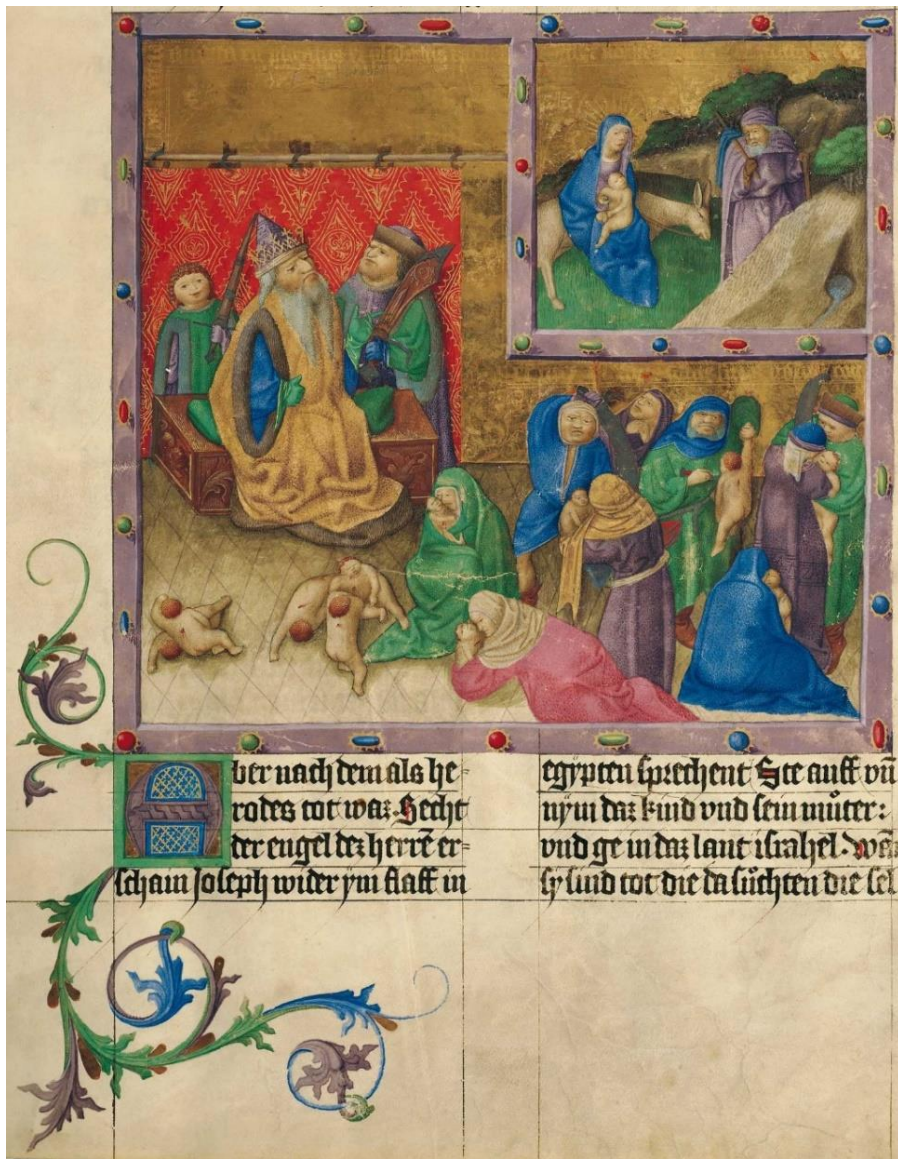 Aber nach dem als he=
rodes tot waz. Secht
der engel dez herrē er=
schain Joseph wider ym slaff in
egypten sprechent Ste auff vn̄
nym daz kind vnd sein můter:
vnd ge in daz lant israhel. wan̄
sy sind tot die da sůchten die sel